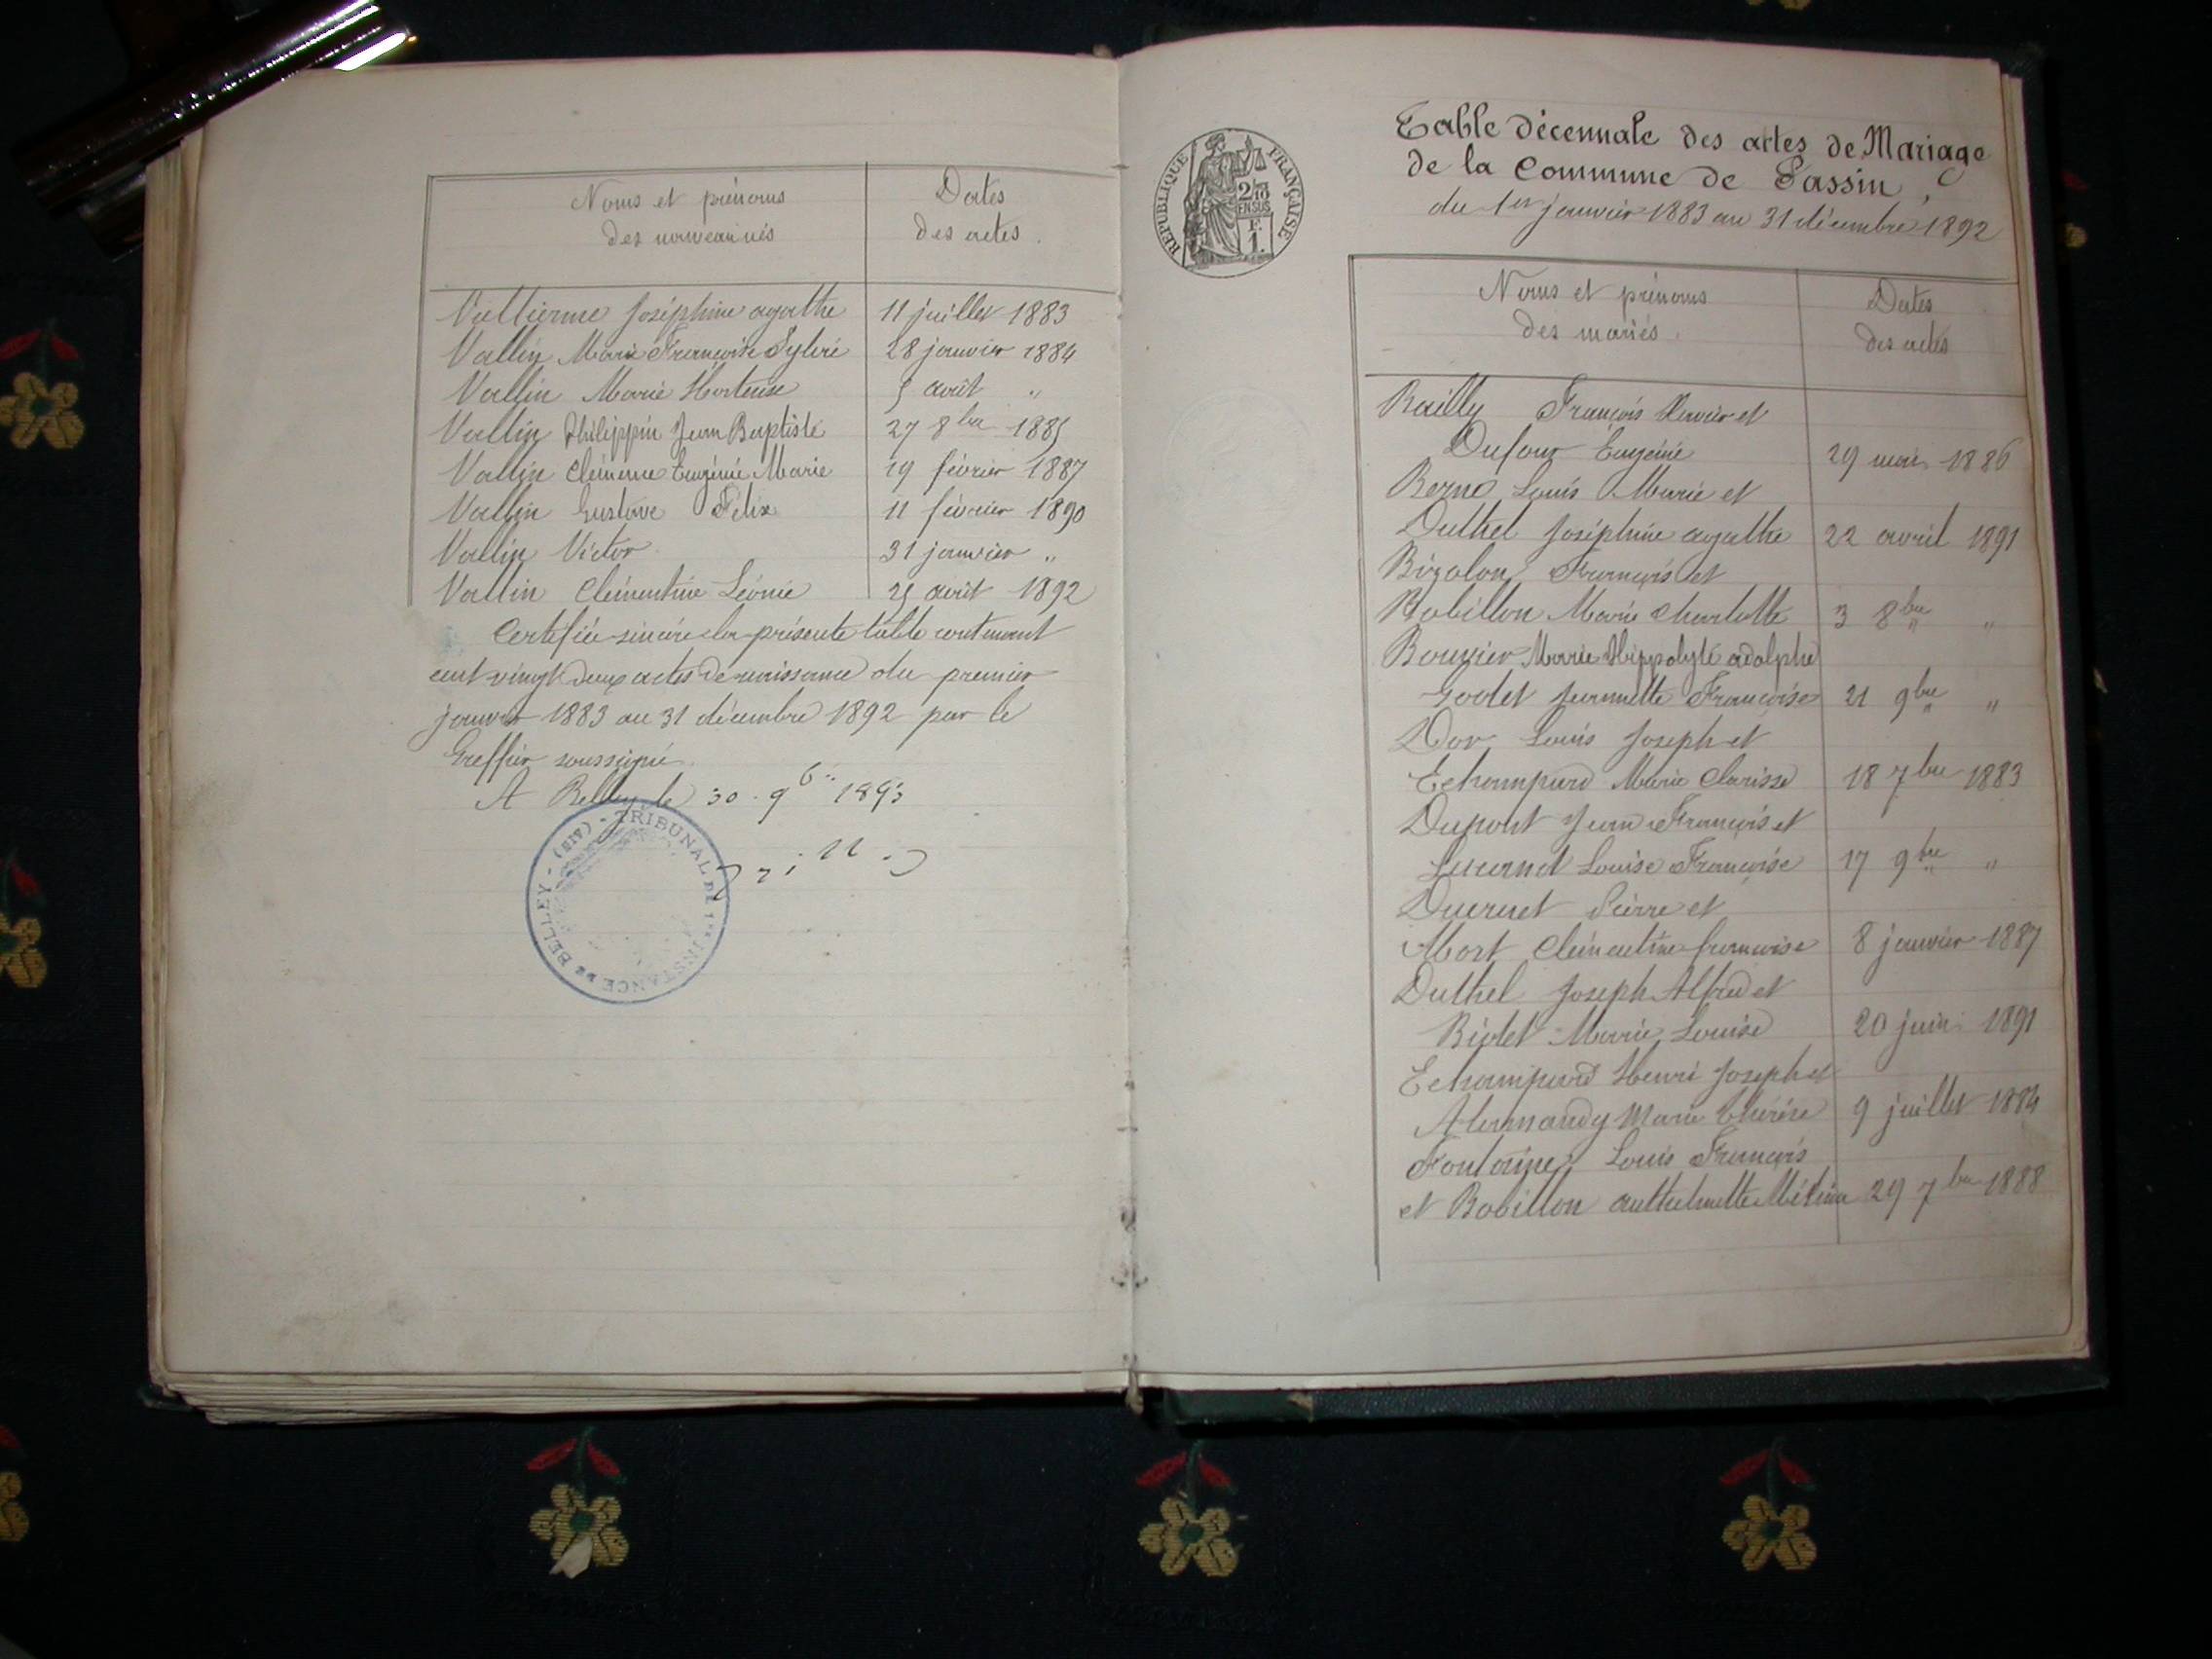 Noms et prénoms
des nouveaux nés
Dates
des actes.
Vallierme Joséphine agathe 11 juillet 1883
Vallin Marie Françoise Sylvie 28 janvier 1884
Vallin Marie Hortense 5 août "
Vallin Philippin Jean Baptiste 27 8bre 1885
Vallin Clémence Eugénie Marie 19 février 1887
Vallin Gustave Félix 11 février 1890
Vallin Victor 31 janvier "
Vallin Clémentine Léonie 25 août 1892
Certifiée sincère la présente table contenant
cent vingt deux actes de naissance du premier
janvier 1883 au 31 décembre 1892 par le
Greffier soussigné
A Belley le 30 9bre 1893
TRIBUNAL DE 1re INSTANCE DE BELLEY - (AIN) -
REPUBLIQUE FRANÇAISE
2/10
EN SUS
F.
1.
Table décennale des actes de Mariage
de la Commune de Passin,
du 1er janvier 1883 au 31 décembre 1892
Noms et prénoms
des mariés.
Dates
des actes
Bailly François Xavier et
Dufour Eugénie 29 mars 1886
Berne Louis Marie et
Duthel Joséphine agathe 22 avril 1891
Bizolon François et
Bobillon Marie Charlotte 3 8bre "
Bouvier Marie Hippolyte adolphe
Godet Jeannette Françoise 21 9bre "
Dor Louis Joseph et
Echampard Marie Clarisse 18 7bre 1883
Dupont Jean François et
Louise Françoise 17 9bre "
Ducruet Pierre et
Mort Clémentine françoise 8 janvier 1887
Duthel Joseph Alfred et
Bidet Marie Louise 20 juin 1891
Echampard Henri Joseph et
Marie Thérèse 9 juillet 1884
Fontaine Louis François
et Bobillon 29 7bre 1888